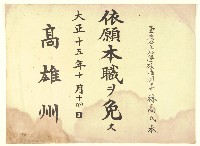 依願本職ヲ免ス
大正十五年十月十四日
高雄州